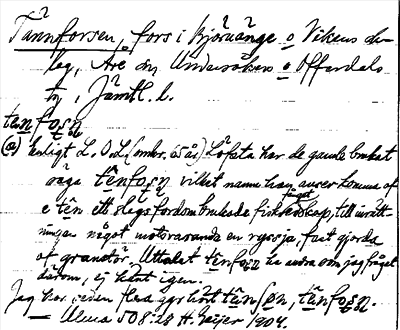 Tännforsen, fors i Björnänge o Vikens
Åre o Undersåkers o Offerdals
i Jämtl. l.
tênfo̱s̱n
(a) Enligt L. O. L. (omkr. 65 år) Löfsta har de gamle brukat
säga tênfo̱s̱n vilket namn han anser komma af
e tên ett slags fordom brukade fiskredskap, till inrätt-
ningen något motsvarande en ryssja, fast gjorda
af granrötter. Uttalet tênfo̱s̱n ha andra som jag frågat
därom, ej känt igen.
Jag har sedan flera ggr hört
508:28 H. Geijer 1904.